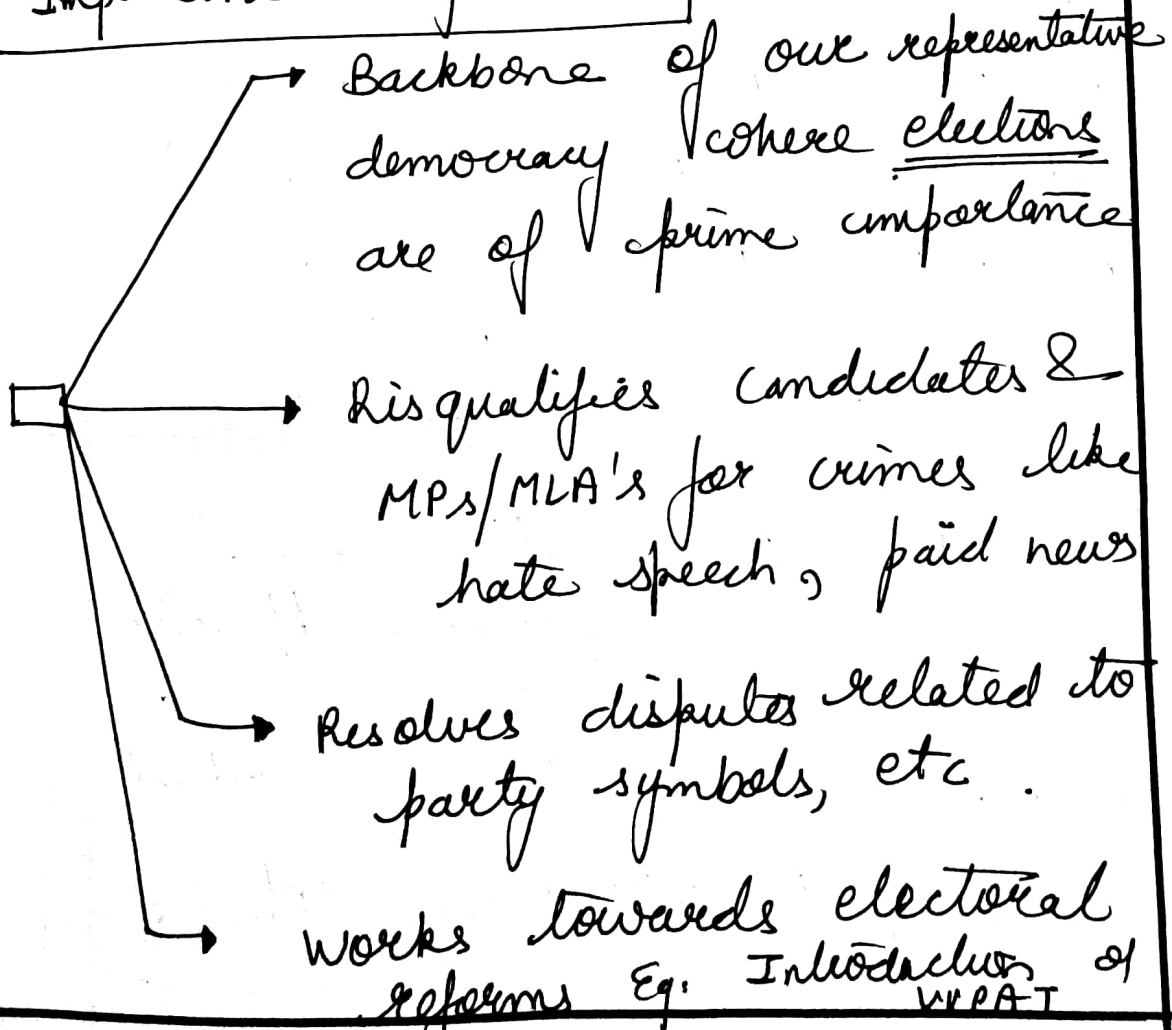 Backbone of our representative
democracy where elections
are of prime importance
Disqualifies candidates &
MPs/MLA's for crimes like
hate speech, paid news
Resolves disputes related to
party symbols, etc.
Works towards electoral
reforms Eg. Introduction of
VVPAT